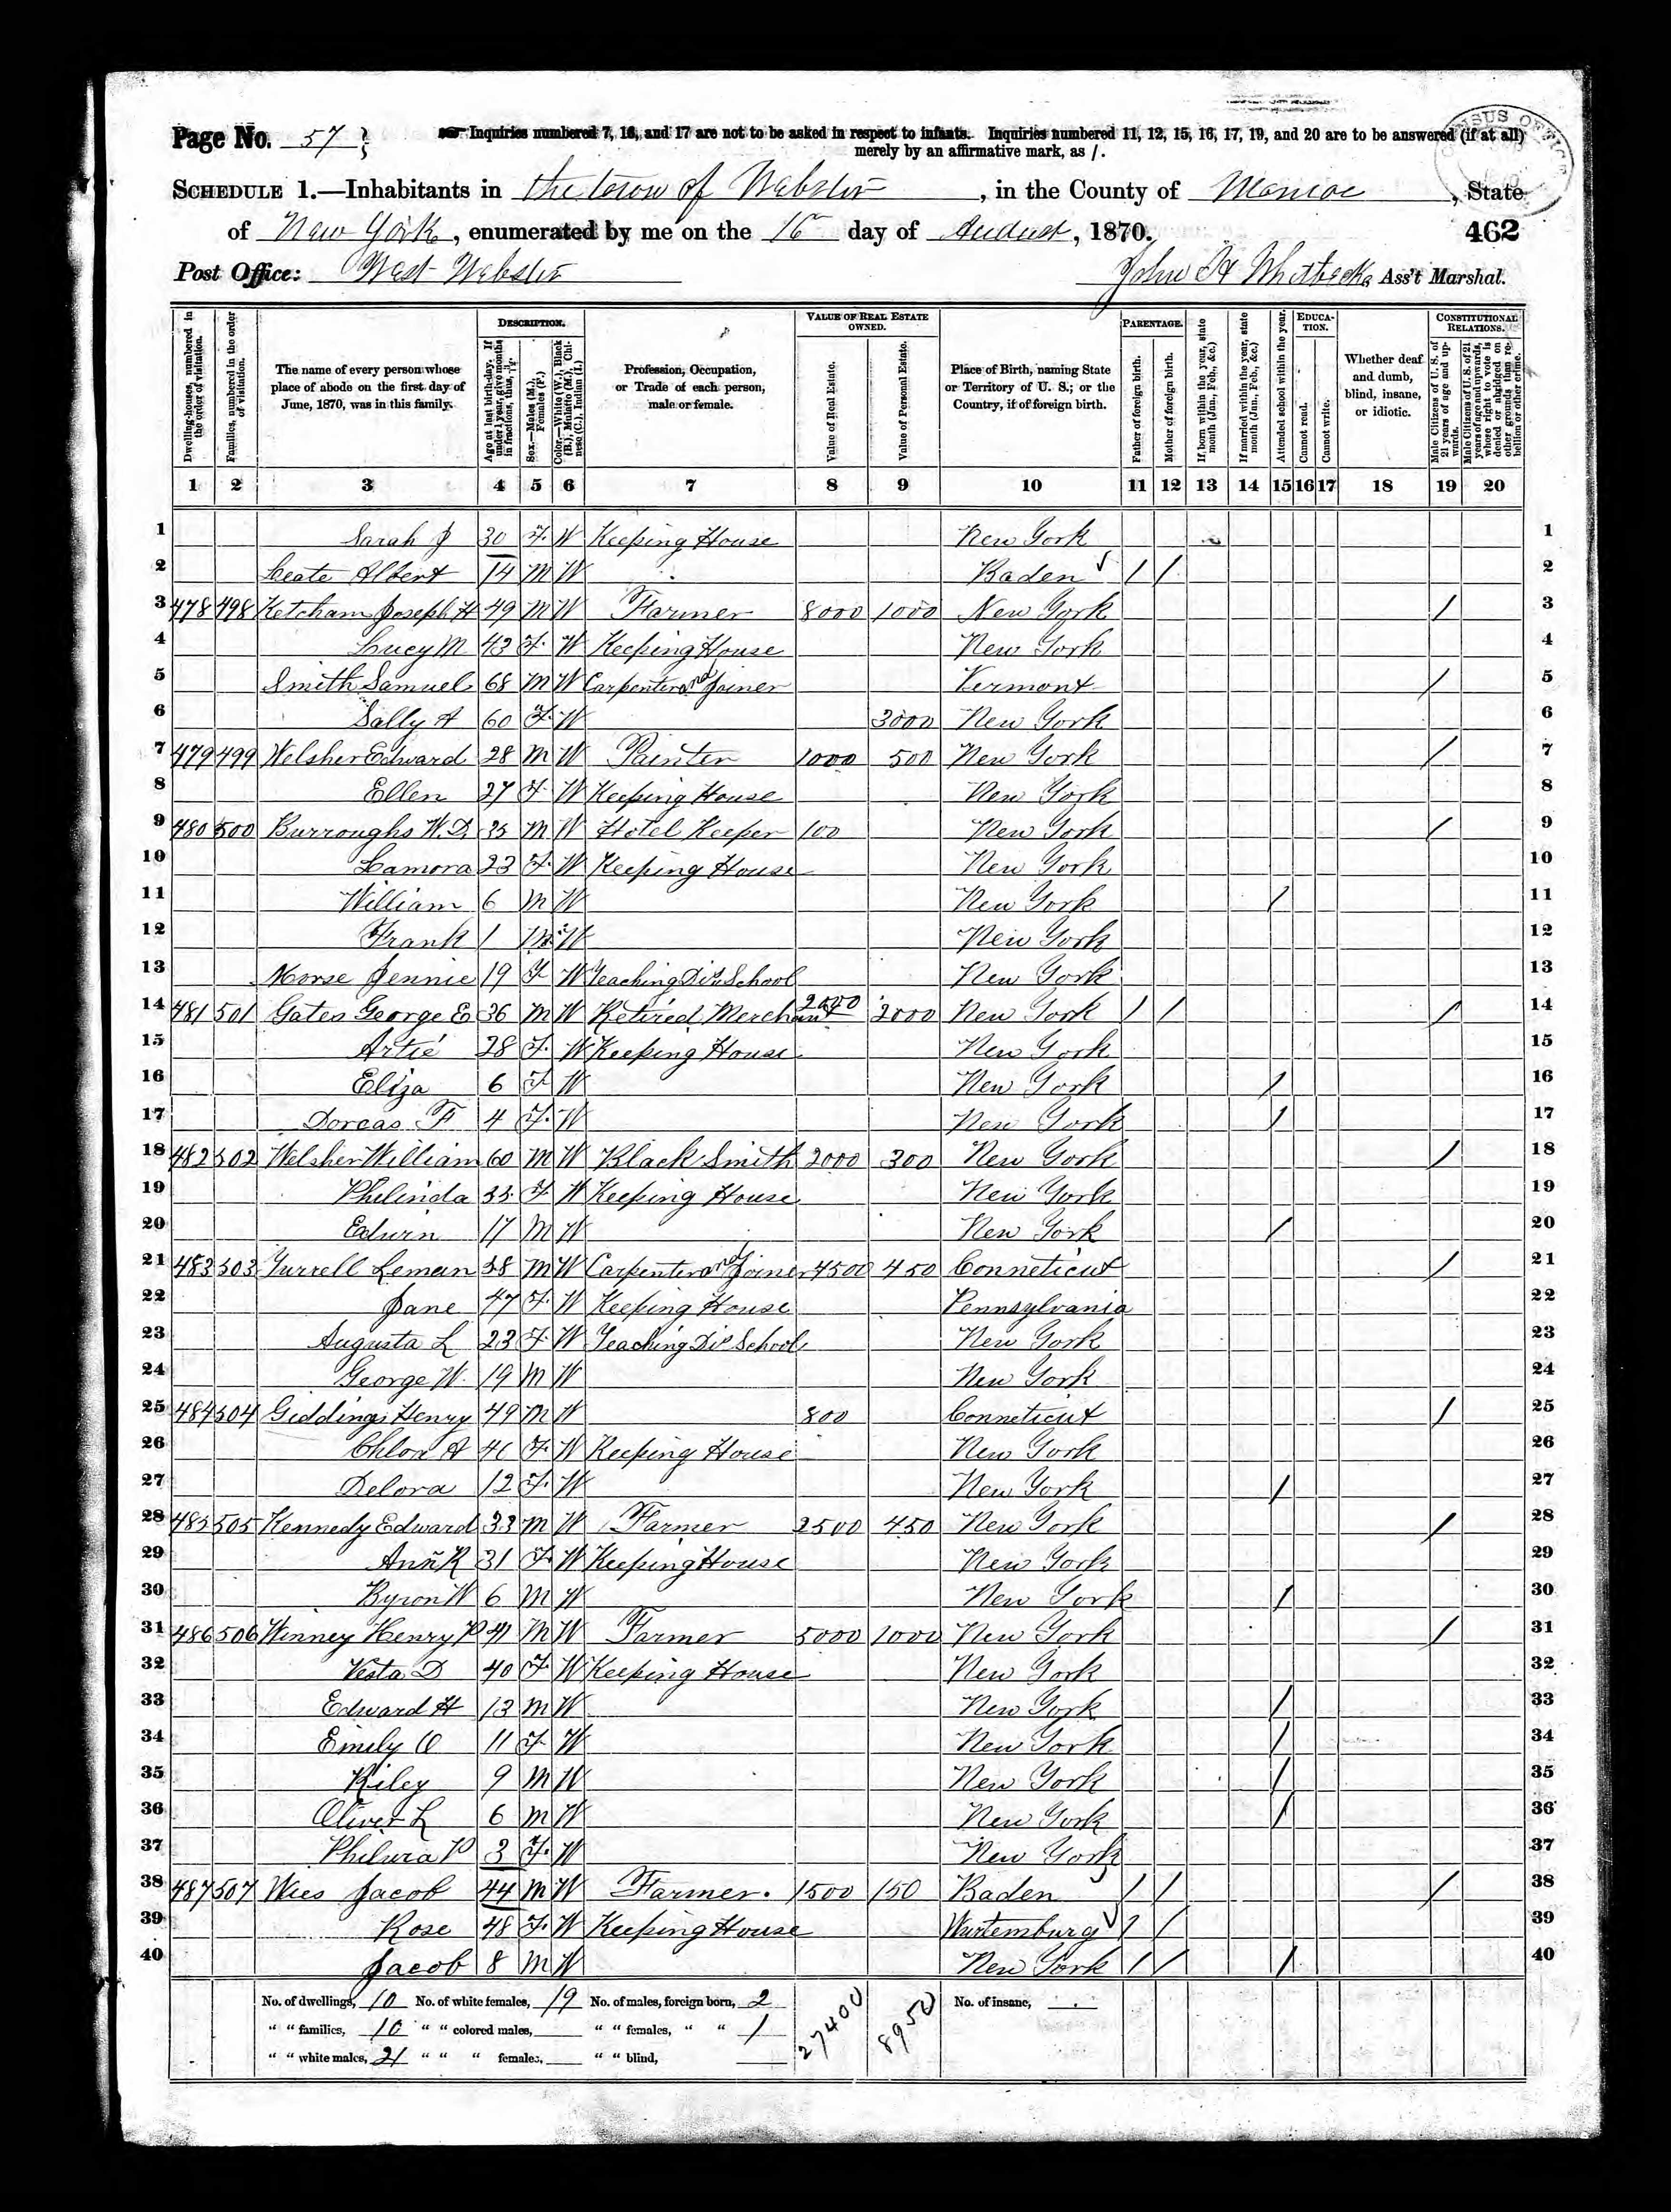 Page No. 57
Inquiries numbered 7, 16, and 17 are not to be asked in respect to infants. Inquiries numbered 11, 12, 15, 16, 17, 19, and 20 are to be answered (if at all)
merely by an affirmative mark, as /.
SCHEDULE 1.—Inhabitants in the town of Webster, in the County of Monroe, State
of New York, enumerated by me on the 16 day of August, 1870. 462
Post Office: West Webster John H Whitbeck, Ass't Marshal.
Dwelling-houses, numbered in the order of visitation.
Families, numbered in the order of visitation.
The name of every person whose place of abode on the first day of June, 1870, was in this family.
DESCRIPTION.
Age at last birth-day. If under 1 year, give months in fractions, thus, 3/12.
Sex.—Males (M.), Females (F.)
Color.—White (W.), Black (B.), Mulatto (M.), Chinese (C.), Indian (I.)
Profession, Occupation, or Trade of each person, male or female.
VALUE OF REAL ESTATE OWNED.
Value of Real Estate.
Value of Personal Estate.
Place of Birth, naming State or Territory of U. S.; or the Country, if of foreign birth.
PARENTAGE.
Father of foreign birth.
Mother of foreign birth.
If born within the year, state month (Jan., Feb., &c.)
If married within the year, state month (Jan., Feb., &c.)
Attended school within the year.
EDUCATION.
Cannot read.
Cannot write.
Whether deaf and dumb, blind, insane, or idiotic.
CONSTITUTIONAL RELATIONS.
Male Citizens of U. S. of 21 years of age and upwards.
Male Citizens of U. S. of 21 years of age and upwards, where right to vote is denied or abridged on other grounds than rebellion or other crime.
1 2 3 4 5 6 7 8 9 10 11 12 13 14 15 16 17 18 19 20
1 Sarah J 30 F W Keeping House New York 1
2 Leate Albert 14 M W Baden / / 2
3 478 498 Ketcham Joseph H 49 M W Farmer 8000 1000 New York / 3
4 Lucy M 43 F W Keeping House New York 4
5 Smith Samuel 68 M W Carpenter and Joiner Vermont / 5
6 Sally A 60 F W 3000 New York 6
7 479 499 Welsher Edward 28 M W Painter 1000 500 New York / 7
8 Ellen 27 F W Keeping House New York 8
9 480 500 Burroughs W. D. 35 M W Hotel Keeper 100 New York / 9
10 Lamora 23 F W Keeping House New York 10
11 William 6 M W New York / 11
12 Frank 1 M W New York 12
13 Morse Jennie 19 F W Teaching Dis School New York 13
14 481 501 Gates George E 36 M W Retired Merchant 2500 2000 New York / / / 14
15 Artie 28 F W Keeping House New York 15
16 Eliza 6 F W New York / 16
17 Dorcas F 4 F W New York / 17
18 482 502 Welsher William 60 M W Black Smith 2000 300 New York / 18
19 Philinda 55 F W Keeping House New York 19
20 Edwin 17 M W New York / 20
21 483 503 Turrell Leman 58 M W Carpenter and Joiner 4500 450 Conneticut / 21
22 Jane 47 F W Keeping House Pennsylvania 22
23 Augusta L 23 F W Teaching Dis School New York 23
24 George W. 19 M W New York 24
25 484 504 Giddings Henry 49 M W 800 Conneticut / 25
26 Chloa A 41 F W Keeping House New York 26
27 Delora 12 F W New York / 27
28 485 505 Kennedy Edward 33 M W Farmer 2500 450 New York / 28
29 Ann R 31 F W Keeping House New York 29
30 Byron W 6 M W New York / 30
31 486 506 Winney Henry P 41 M W Farmer 5000 1000 New York / 31
32 Vesta D 40 F W Keeping House New York 32
33 Edward H 13 M W New York / 33
34 Emily O 11 F W New York / 34
35 Riley 9 M W New York / 35
36 Oliver L 6 M W New York / 36
37 Philura P 3 F W New York 37
38 487 507 Wies Jacob 44 M W Farmer. 1500 150 Baden / / / 38
39 Rose 48 F W Keeping House Wurtemburg / / 39
40 Jacob 8 M W New York / / / 40
No. of dwellings, 10 No. of white females, 19 No. of males, foreign born, 2 27400 8950 No. of insane,
" " families, 10 " " colored males, " " females, " " 1
" " white males, 21 " " " females, " " blind,